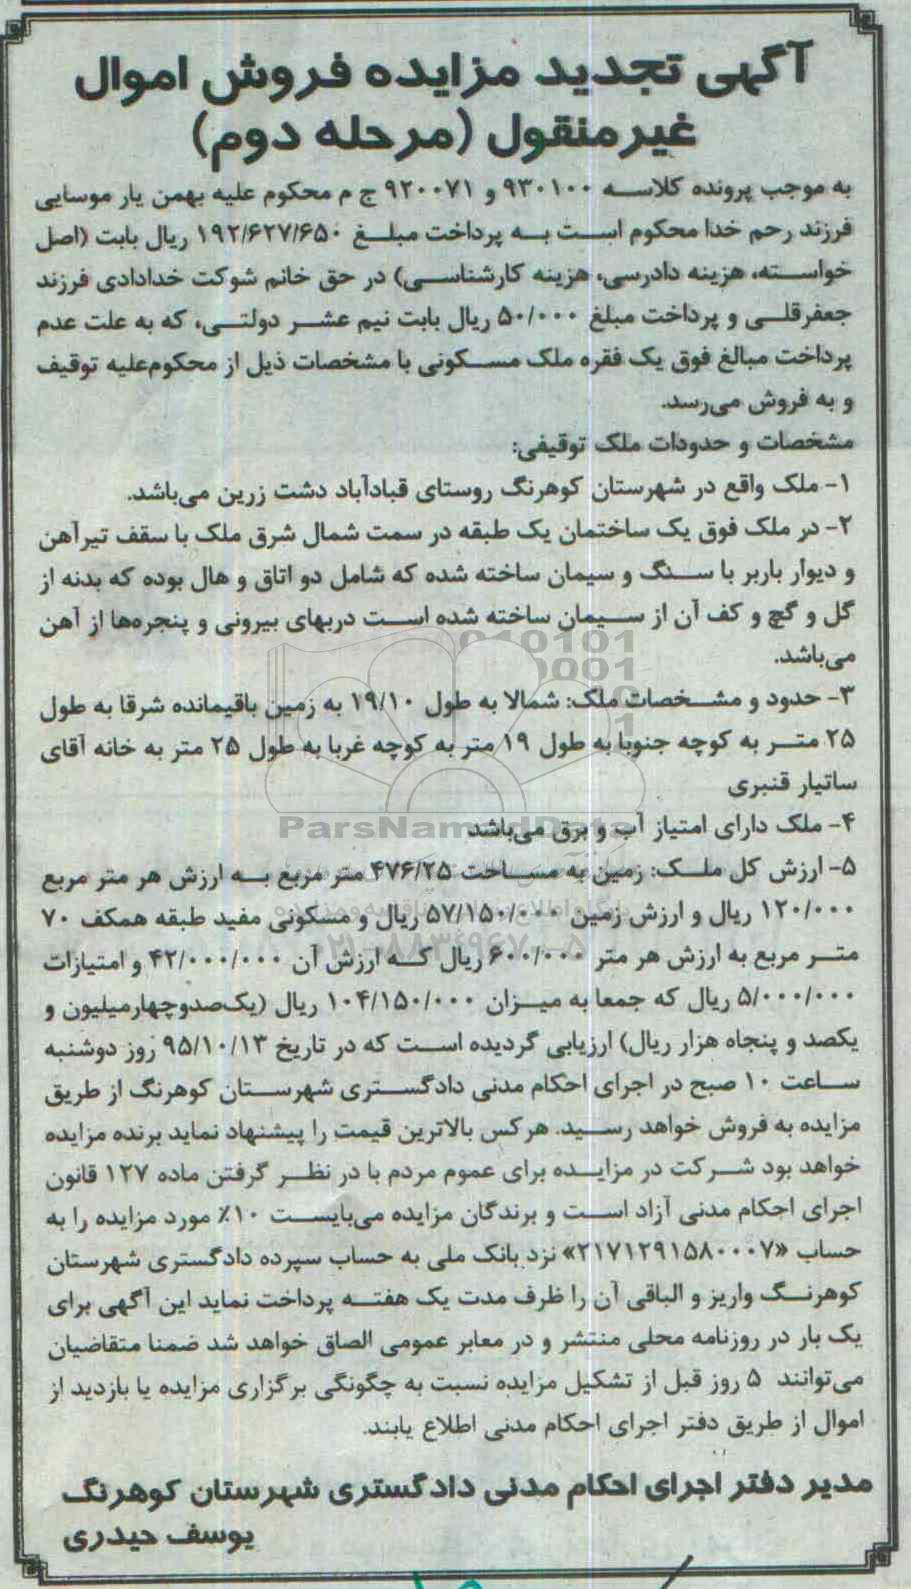 آگهی تجدید مزایده فروش اموال
غیرمنقول (مرحله دوم)
به موجب پرونده کلاسه ۹۳۰۱۰۰ و ۹۲۰۰۷۱ ج م محکوم علیه بهمن یار موسایی
فرزند رحم خدا محکوم است به پرداخت مبلغ ۱۹۲/۶۲۷/۶۵۰ ریال بابت (اصل
خواسته، هزینه دادرسی، هزینه کارشناسی) در حق خانم شوکت خدادادی فرزند
جعفرقلی و پرداخت مبلغ ۵۰/۰۰۰ ریال بابت نیم عشر دولتی، که به علت عدم
پرداخت مبالغ فوق یک فقره ملک مسکونی با مشخصات ذیل از محکوم‌علیه توقیف
و به فروش می‌رسد.
مشخصات و حدودات ملک توقیفی:
۱- ملک واقع در شهرستان کوهرنگ روستای قبادآباد دشت زرین می‌باشد.
۲- در ملک فوق یک ساختمان یک طبقه در سمت شمال شرق ملک با سقف تیرآهن
و دیوار باربر با سنگ و سیمان ساخته شده که شامل دو اتاق و هال بوده که بدنه از
گل و گچ و کف آن از سیمان ساخته شده است دربهای بیرونی و پنجره‌ها از آهن
می‌باشد.
۳- حدود و مشخصات ملک: شمالا به طول ۱۹/۱۰ به زمین باقیمانده شرقا به طول
۲۵ متر به کوچه جنوبا به طول ۱۹ متر به کوچه غربا به طول ۲۵ متر به خانه آقای
ساتیار قنبری
۴- ملک دارای امتیاز آب و برق می‌باشد
ParsNamadData
۵- ارزش کل ملک: زمین به مساحت ۴۷۶/۲۵ متر مربع به ارزش هر متر مربع
۱۲۰/۰۰۰ ریال و ارزش زمین ۵۷/۱۵۰/۰۰۰ ریال و مسکونی مفید طبقه همکف ۷۰
متر مربع به ارزش هر متر ۶۰۰/۰۰۰ ریال که ارزش آن ۴۲/۰۰۰/۰۰۰ و امتیازات
۵/۰۰۰/۰۰۰ ریال که جمعا به میزان ۱۰۴/۱۵۰/۰۰۰ ریال (یک‌صدوچهارمیلیون و
یکصد و پنجاه هزار ریال) ارزیابی گردیده است که در تاریخ ۹۵/۱۰/۱۳ روز دوشنبه
ساعت ۱۰ صبح در اجرای احکام مدنی دادگستری شهرستان کوهرنگ از طریق
مزایده به فروش خواهد رسید. هرکس بالاترین قیمت را پیشنهاد نماید برنده مزایده
خواهد بود شرکت در مزایده برای عموم مردم با در نظر گرفتن ماده ۱۲۷ قانون
اجرای احکام مدنی آزاد است و برندگان مزایده می‌بایست ۱۰٪ مورد مزایده را به
حساب «۲۱۷۱۲۹۱۵۸۰۰۰۷» نزد بانک ملی به حساب سپرده دادگستری شهرستان
کوهرنگ واریز و الباقی آن را ظرف مدت یک هفته پرداخت نماید این آگهی برای
یک بار در روزنامه محلی منتشر و در معابر عمومی الصاق خواهد شد ضمنا متقاضیان
می‌توانند ۵ روز قبل از تشکیل مزایده نسبت به چگونگی برگزاری مزایده یا بازدید از
اموال از طریق دفتر اجرای احکام مدنی اطلاع یابند.
مدیر دفتر اجرای احکام مدنی دادگستری شهرستان کوهرنگ
یوسف حیدری